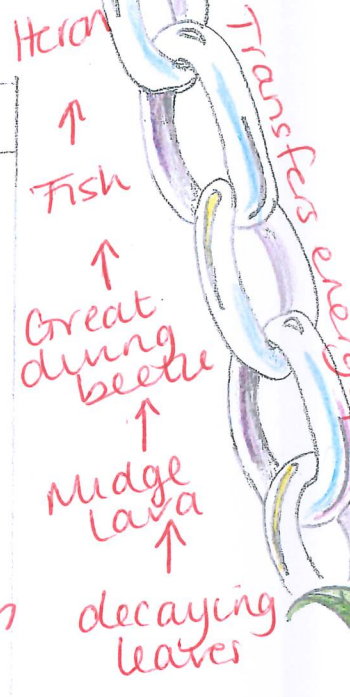 Heron
Fish
Great
diving
beetle
Midge
Lava
decaying
leaves
Transfers energy